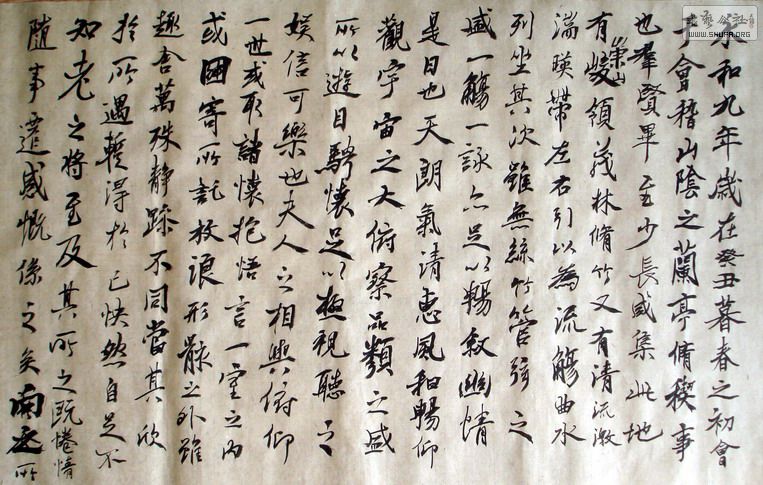 永和九年歲在癸丑暮春之初會
于會稽山陰之蘭亭脩稧事
也羣賢畢至少長咸集此地
有崇山峻領茂林脩竹又有清流激
湍暎帶左右引以為流觴曲水
列坐其次雖無絲竹管弦之
盛一觴一詠亦足以暢敘幽情
是日也天朗氣清惠風和暢仰
觀宇宙之大俯察品類之盛
所以遊目騁懷足以極視聽之
娛信可樂也夫人之相與俯仰
一世或取諸懷抱悟言一室之內
或因寄所託放浪形骸之外雖
趣舍萬殊靜躁不同當其欣
於所遇暫得於己快然自足不
知老之將至及其所之既惓情
隨事遷感慨係之矣向之所
WWW.SHUFA.ORG